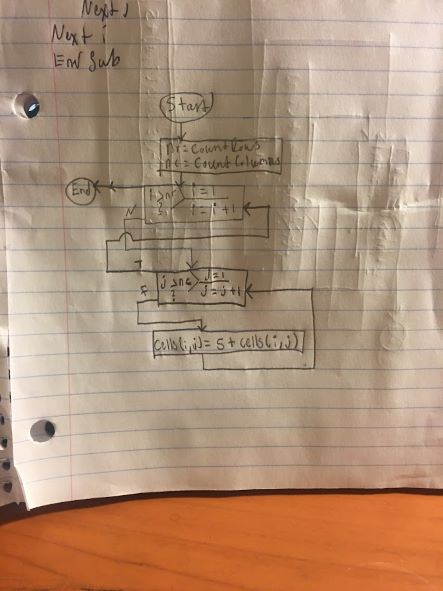 Next j
Next i
End Sub
Start
nr = CountRows
nc = CountColumns
End
i > nr
?
i = 1
i = i + 1
N
T
j > nc
?
j = 1
j = j + 1
F
cells(i,j) = 5 + cells(i,j)